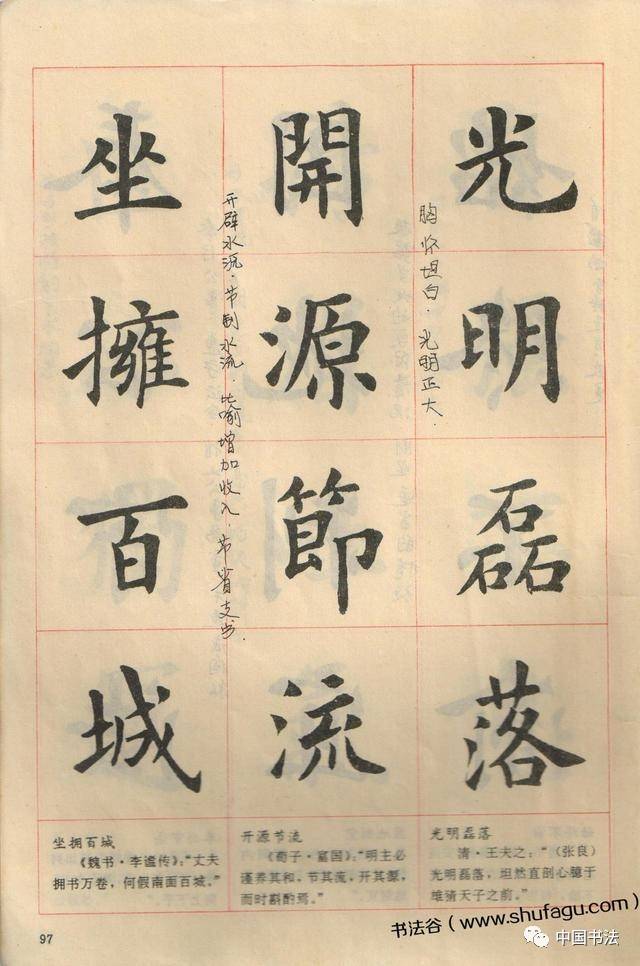 光明磊落
胸怀坦白.光明正大.
開源節流
开辟水沅.节制水流.比喻增加收入.节省支出
坐擁百城
光明磊落
清·王夫之：“（张良）
光明磊落，坦然直剖心臆于
雄猜天子之前。”
开源节流
《荀子·富国》：“明主必
谨养其和，节其流，开其源，
而时斟酌焉。”
坐拥百城
《魏书·李谧传》：“丈夫
拥书万卷，何假南面百城。”
97
书法谷（www.shufagu.com）
中国书法